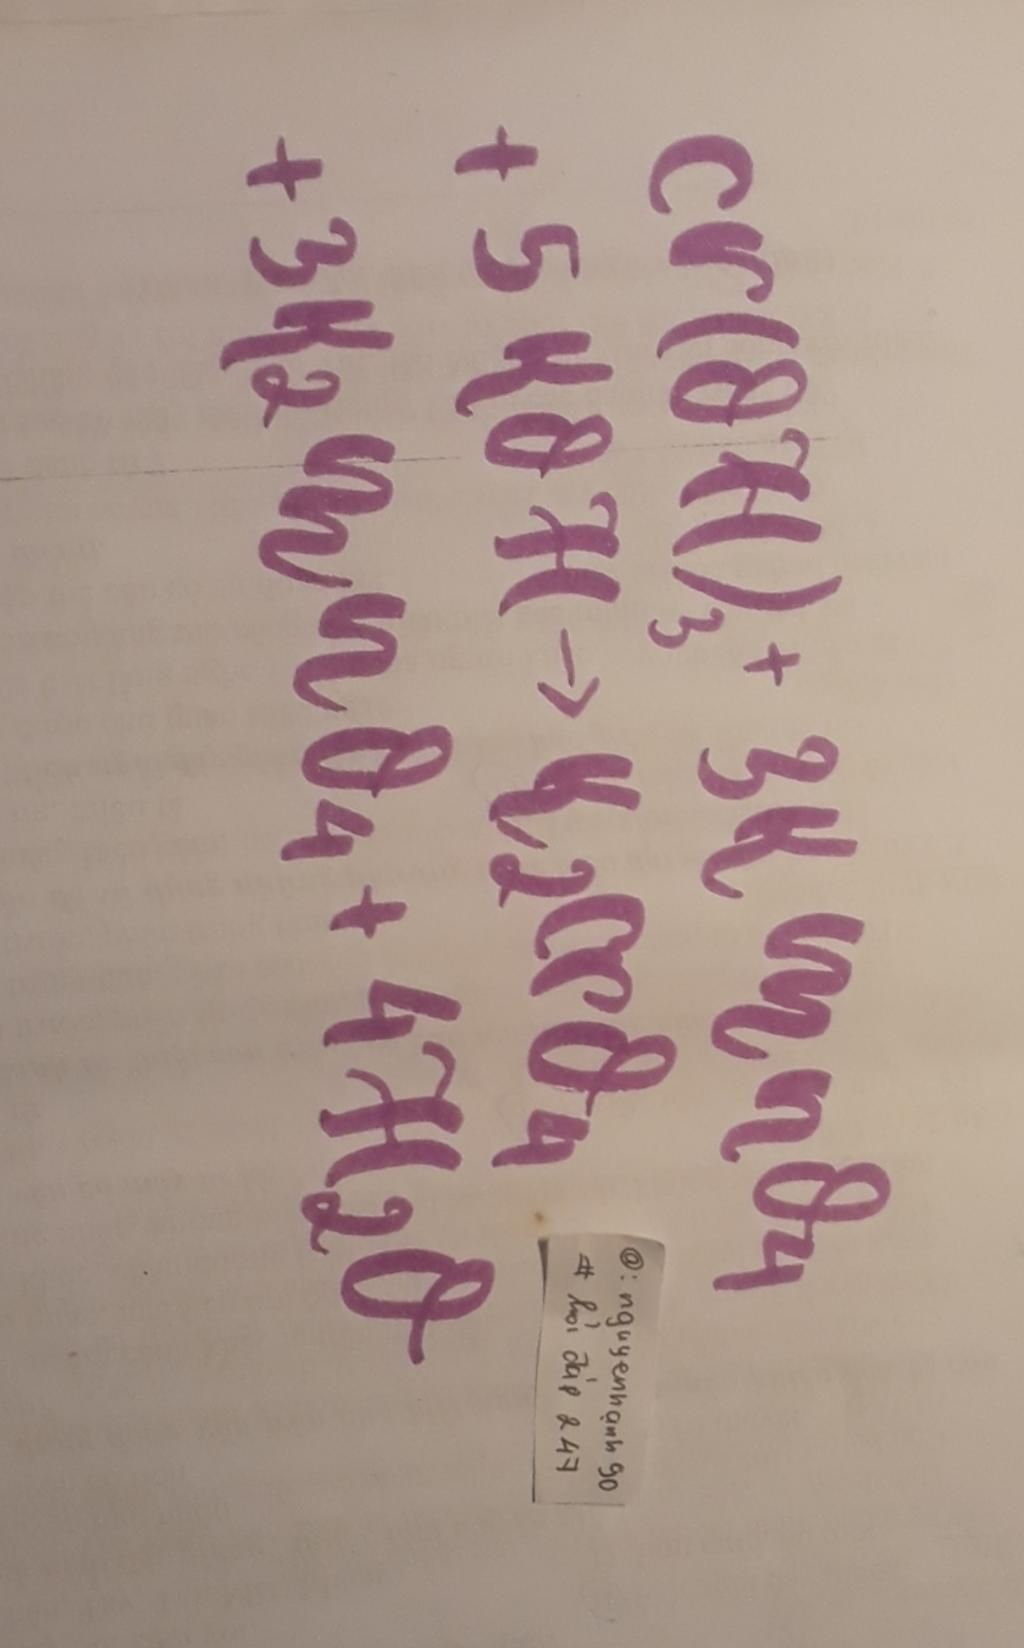 Cr(OH)3 + 3KMnO4
+ 5KOH → K2CrO4
+ 3K2MnO4 + 4H2O
@: nguyenhạnh 90
# hỏi đáp 247